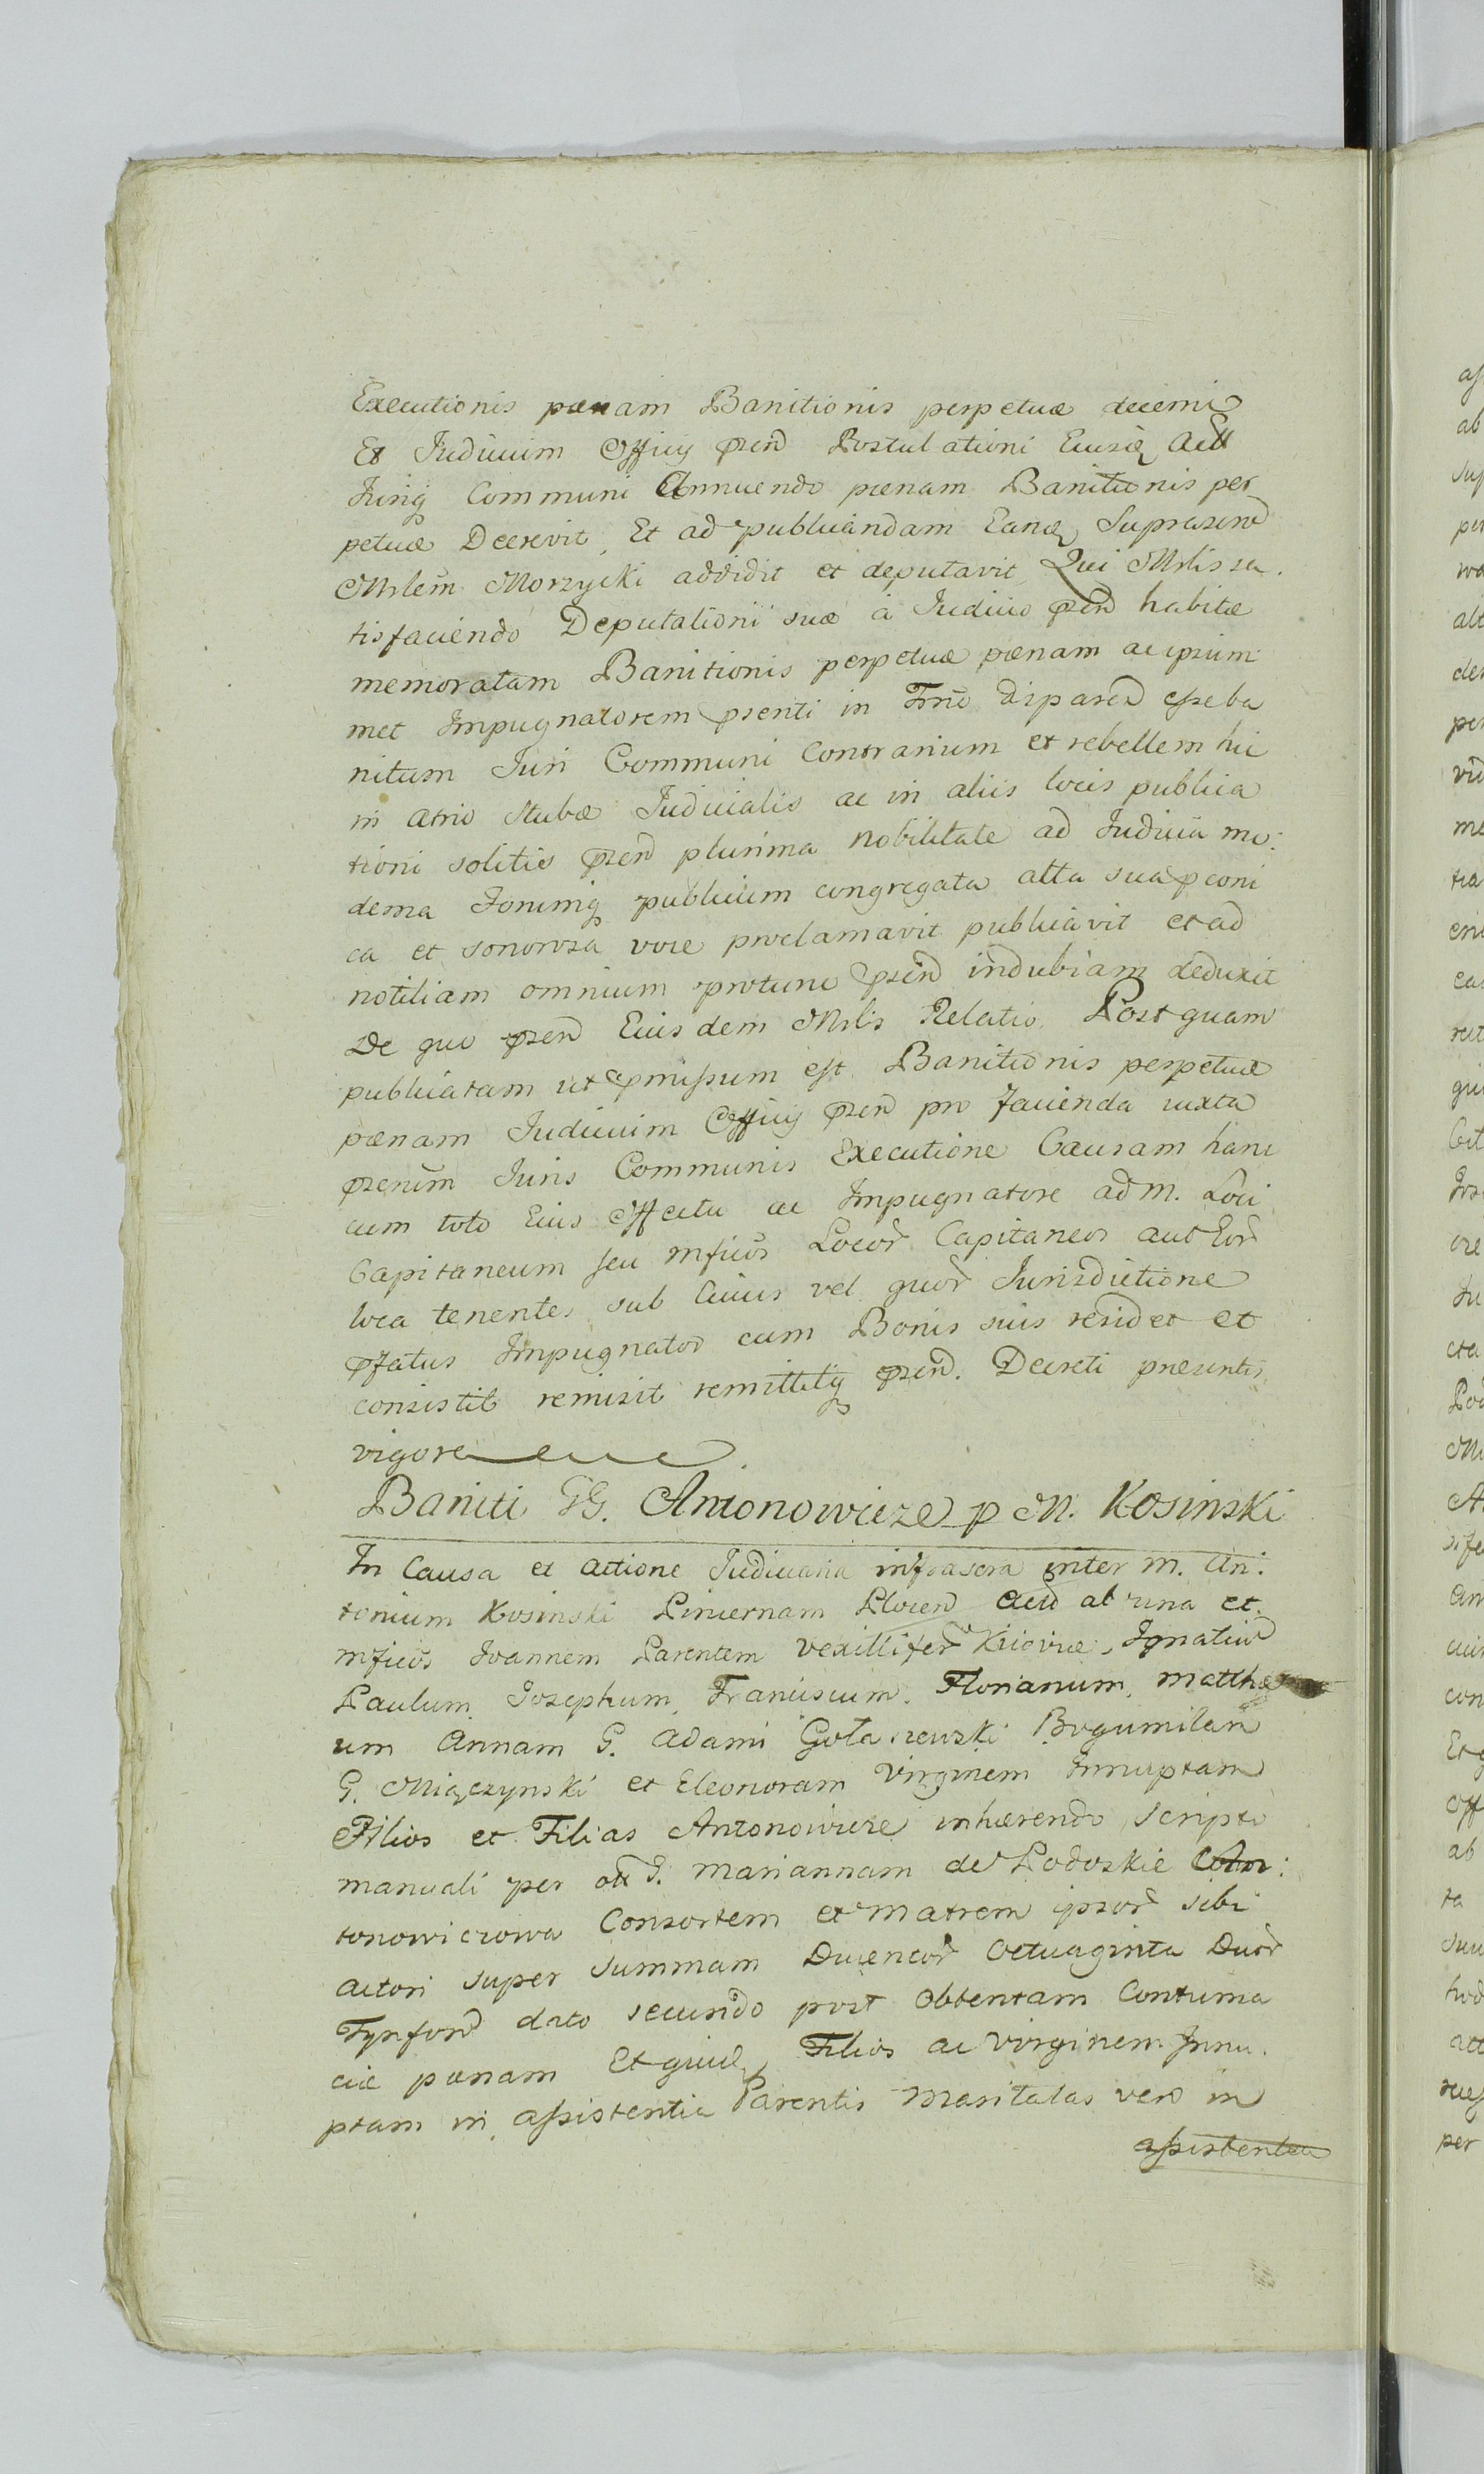 Executionis pœnam Banitionis perpetuæ decerni
Et Iudicium Officij pzen Postulationi Eiusq Act
Iuriq Communi Annuendo pœnam Banitionis per
petuæ Decrevit, Et ad publicandam Eanq Supraszen
Mrlem Morzycki addidit et deputavit, Qui Mrlis sa.
tisfaciendo Deputationi suæ à Iudicio pzen habitæ
memoratam Banitionis perpetuæ pœnam ac ipsum
met Impugnatorem psenti in Trno disparen esse ba
nitum Iuri Communi Contrarium et rebellem hic
in atrio Stubæ Iudicialis ac in aliis locis publica
tioni solitis pzen plurima nobilitate ad Iudicia mo:
derna Forumq publicum congregata alta sua pconi
ca et sonorosa voce proclamavit publicavit et ad
notitiam omnium protunc pzen indubiam deduxit
De quo pzen Eiusdem Mrlis Relatio. Postquam
publicatam ut pmissum est Banitionis perpetuæ
pœnam Iudicium Officij pzen pro facienda iuxta
pzenum Iuris Communis Executione Causam hanc
cum toto Eius Effectu ac Impugnatore ad M. Loci
Capitaneum seu Mficos Locor Capitaneos aut Eor
loca tenentes sub Cuius vel quor Iurisdictione
pfatus Impugnator cum Bonis suis residet et
consistit remisit remittitq pzen. Decreti præsentis
vigore
Baniti GG. Antonowicze p M. Kosinski
In Causa et actione Iudiciaria infrascra inter M. An:
tonium Kosinski Pincernam Plocen Act ab una et
Mficos Ioannem Parentem Vexillifer Kijoviæ, Ignatium
Paulum, Iosephum, Franciscum, Florianum, Matthæ
um Annam G. Adami Gołaszewski Bogumilam
G. Miączynski et Eleonoram Virginem Innuptam
Filios et Filias Antonowicze inhærendo scripto
manuali per olt G. Mariannam de Podoskie An:
tonowiczowa Consortem et Matrem ipsor sibi
actori super summam Ducentor Octuaginta Duor
Tynfon dato secundo post obtentam Contuma
ciæ pœnam Et quidq Filios ac Virginem Innu.
ptam in assistentia Parentis Maritatas vero in
assistentia